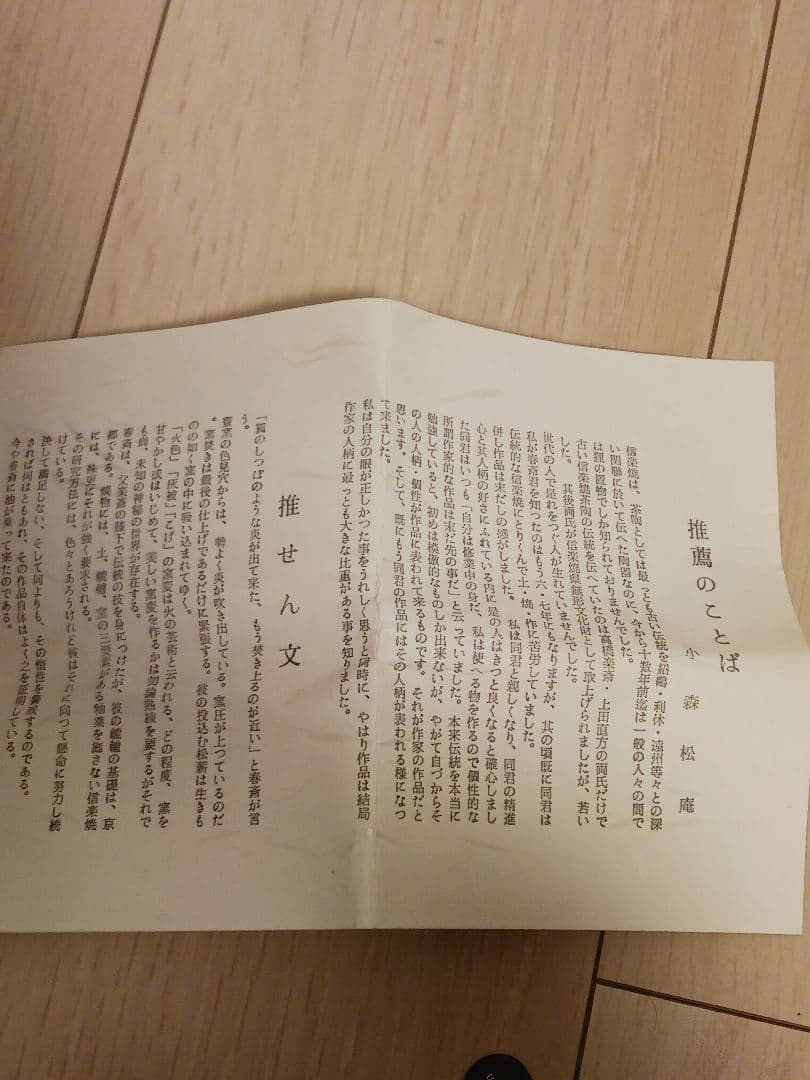 推薦のことば
小森松庵
信楽焼は、茶陶としては最っとも古い伝統を紹鷗・利休・遠州等々との深
い関聯に於いて伝へた陶器なのに、今から十数年前迄は一般の人々の間で
は狸の置物でしか知られておりませんでした。
古い信楽焼茶陶の伝統を伝へていたのは高橋楽斎・上田直方の両氏だけで
した。　其後両氏が信楽焼県無形文化財として取上げられましたが、若い
世代の人で是れをつぐ人が生れていませんでした。
私が春斎君を知つたのはもう六・七年にもなりますが、其の頃既に同君は
伝統的な信楽焼にとりくんで土・焼・作に苦労していました。
併し作品は末だしの感がしました。　私は同君と親しくなり、同君の精進
心と其人柄の好さにふれている内に是の人はきつと良くなると確心しまし
た同君はいつも「自分は修業中の身だ、私は使へる物を作るので個性的な
所謂作家的な作品は末だ先の事だ」と云っていました。本来伝統を本当に
勉強していると、初めは模倣的なものしか出来ないが、やがて自づからそ
の人の人柄・個性が作品に表われて来るものです。それが作家の作品だと
思います。そして、既にもう同君の作品にはその人柄が表われる様になつ
て来ました。
私は自分の眼が正しかつた事をうれしく思うと同時に、やはり作品は結局
作家の人柄に最っとも大きな比重がある事を知りました。
推せん文
「狐のしつぽのような炎が出て来た、もう焚き上るのが近い」と春斎が言
う。
登窯の色見穴からは、勢よく炎が吹き出している。窯圧が上つているのだ
。窯焚きは最後の仕上げであるだけに緊張する。　彼の投込む松薪は生きも
のの如く窯の中に吸い込まれてゆく。
「火色」「灰被」「こげ」の窯変は火の芸術と云われる、どの程度、窯を
甘やかし或はいじめて、美しい窯変を作るかは勿論熟練を要するがそれで
も尚、未知の神秘の世界が存在する。
春斎は、父楽斎の膝下で伝統の技を身につけたが、彼の轆轤の基礎は、京
都である。焼物には、土、轆轤、窯の三要素がある釉薬を施さない信楽焼
には、殊更にそれが強く要求される。
その研究方法には、色々とあろうけれど彼はそれに向つて懸命に努力し続
けている。
決して満足しない、そして何よりも、その惰性を警戒するのである。
されば何はともあれ、その作品自体はよく之を証明している。
今や春斎に油が乗って来たのである。